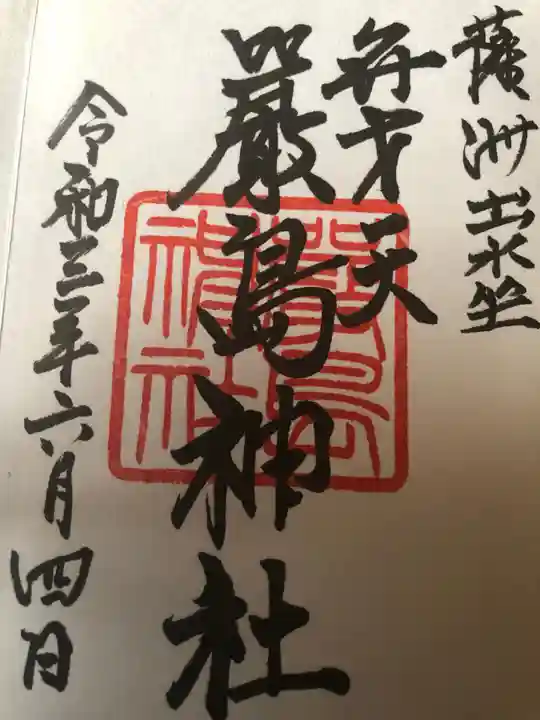 薩洲出水坐
弁才天
嚴島神社
令和三年六月四日
嚴島
神社